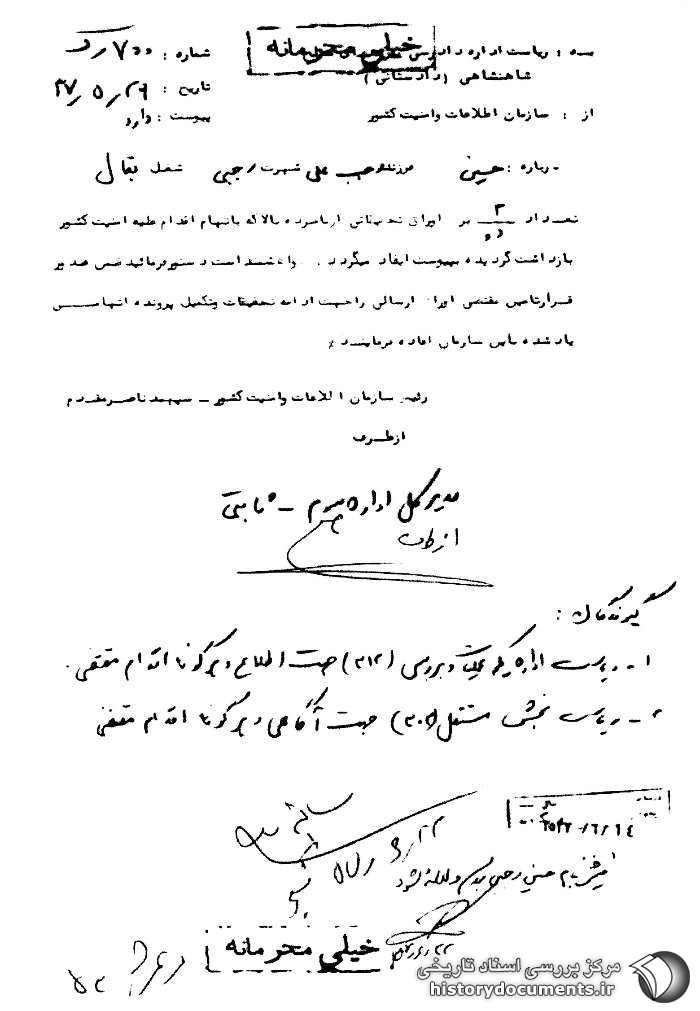 خیلی محرمانه
به : ریاست اداره دادرسی
شاهنشاهی (دادستانی)
از : سازمان اطلاعات و امنیت کشور
شماره : ۷۰۰
تاریخ : ۲۶ / ۵ / ۳۷
پیوست : دارد
درباره : حسین فرزند رجب علی شهرت رجبی شغل بقال
تعداد ۲ دو برگ اوراق تحقیقاتی از نامبرده بالا که باتهام اقدام علیه امنیت کشور
بازداشت گردیده به پیوست ایفاد میگردد . خواهشمند است دستور فرمائید ضمن صدور
قرار تامین مقتضی اوراق ارسالی را جهت ادامه تحقیقات و تکمیل پرونده اتهامی
یاد شده باین سازمان اعاده فرمایند ٪
رئیس سازمان اطلاعات و امنیت کشور – سپهبد ناصر مقدم
از طرف
مدیر کل اداره سوم – ثابتی
از طرف
گیرندگان :
۱ – ریاست اداره یکم عملیات و بررسی (۳۱۲) جهت اطلاع و هرگونه اقدام مقتضی .
۲ – ریاست بخش مستقل (۳۰۲) جهت آگاهی و هرگونه اقدام مقتضی
بنام حسین رجبی
خیلی محرمانه
مرکز بررسی اسناد تاریخی
historydocuments.ir